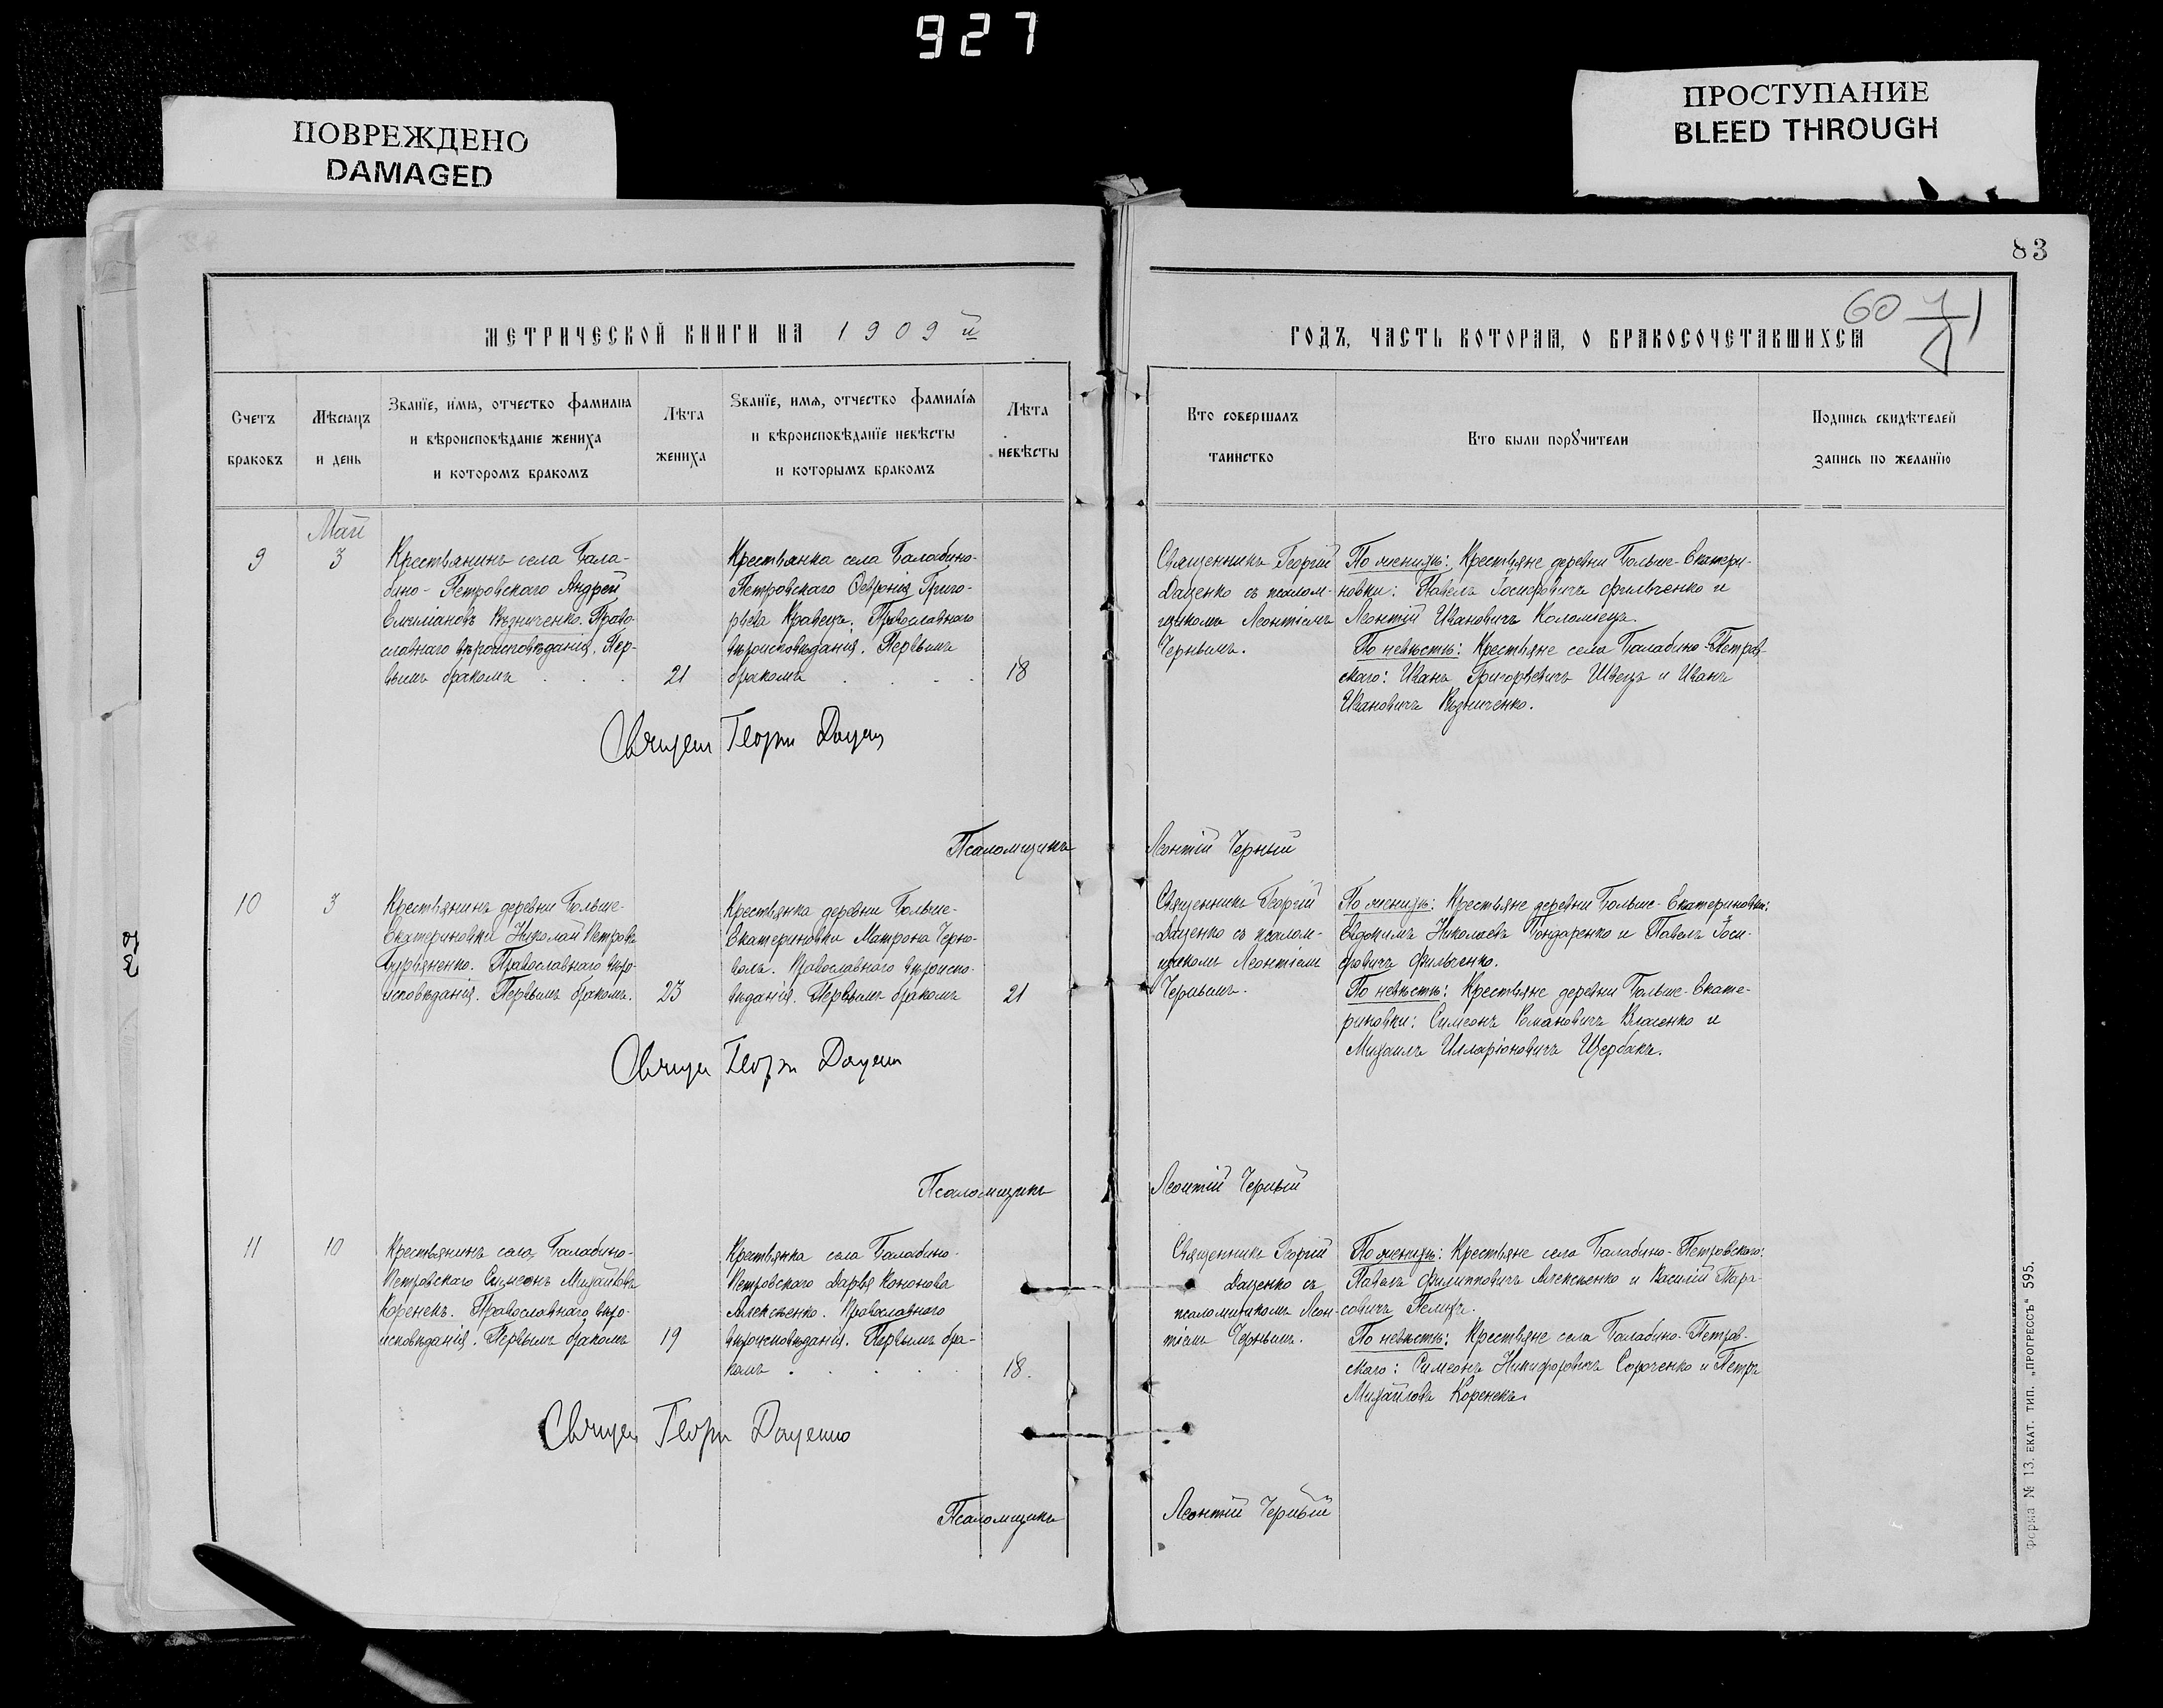 927
ПОВРЕЖДЕНО
DAMAGED
ПРОСТУПАНИЕ
BLEED THROUGH
83
60
МЕТРИЧЕСКОЙ КНИГИ НА 1909й
ГОДЪ, ЧАСТЬ КОТОРАЯ, О БРАКОСОЧЕТАВШИХСЯ
Счетъ
браковъ
Мѣсяцъ
и день
Званїе, имя, отчество фамилия
и вѣроисповѣданїе жениха
и которомъ бракомъ
Лѣта
жениха
Званїе, имя, отчество фамилїя
и вѣроисповѣданїе невѣсты
и которымъ бракомъ
Лѣта
невѣсты
Кто совершалъ
таинство
Кто были порꙋчители
Подпись свидѣтелей
запись по желанїю
Май
9
3
Крестьянинъ села Бала-
бино-Петровскаго Андрей
Емиліановъ Возниченко. Право-
славнаго вѣроисповѣданія. Пер-
вымъ бракомъ . . .
21
Крестьянка села Балабино-
Петровскаго Февронія Григо-
рьева Кравецъ. Православнаго
вѣроисповѣданія. Первымъ
бракомъ . . . .
18
Священникъ Георгій
Даценко съ псалом-
щикомъ Леонтіемъ
Чернымъ.
По женихѣ: Крестьяне деревни Больше-Екатери-
новки: Павелъ Іосифовичъ Фильченко и
Леонтій Ивановичъ Коломіецъ.
По невѣстѣ: Крестьяне села Балабино-Петров-
скаго: Иванъ Григорьевичъ Швецъ и Иванъ
Ивановичъ Возниченко.
Георги
Псаломщикъ Леонтій Черный
10
3
Крестьянинъ деревни Больше-
Екатериновки Николай Петровъ
Бурьяненко. Православнаго вѣро-
исповѣданія. Первымъ бракомъ.
23
Крестьянка деревни Больше-
Екатериновки Матрона Черно-
волъ. Православнаго вѣроиспо-
вѣданія. Первымъ бракомъ
21
Священникъ Георгій
Даценко съ псалом-
щикомъ Леонтіемъ
Чернымъ.
По женихѣ: Крестьяне деревни Больше-Екатериновки:
Евдокимъ Николаевъ Бондаренко и Павелъ Іоси-
фовичъ Фильченко.
По невѣстѣ: Крестьяне деревни Больше-Екате-
риновки: Симеонъ Романовичъ Власенко и
Михаилъ Илларіоновичъ Щербакъ.
Псаломщикъ Леонтій Черный
11
10
Крестьянинъ села Балабино-
Петровскаго Симеонъ Михайловъ
Коренекъ. Православнаго вѣро-
исповѣданія. Первымъ бракомъ
19
Крестьянка села Балабино-
Петровскаго Дарья Кононова
Алексѣенко. Православнаго
вѣроисповѣданія. Первымъ бра-
комъ . . . . .
18.
Священникъ Георгій
Даценко съ
псаломщикомъ Леон-
тіемъ Чернымъ.
По женихѣ: Крестьяне села Балабино-Петровскаго:
Павелъ Филипповичъ Алексѣенко и Василій Тара-
совичъ Пелихъ.
По невѣстѣ: Крестьяне села Балабино-Петров-
скаго: Симеонъ Никифоровичъ Сороченко и Петръ
Михайловъ Коренекъ.
Георги Даценко
Псаломщикъ Леонтій Черный
Форма № 13. ЕКАТ. ТИП. „ПРОГРЕССЪ“ 595.